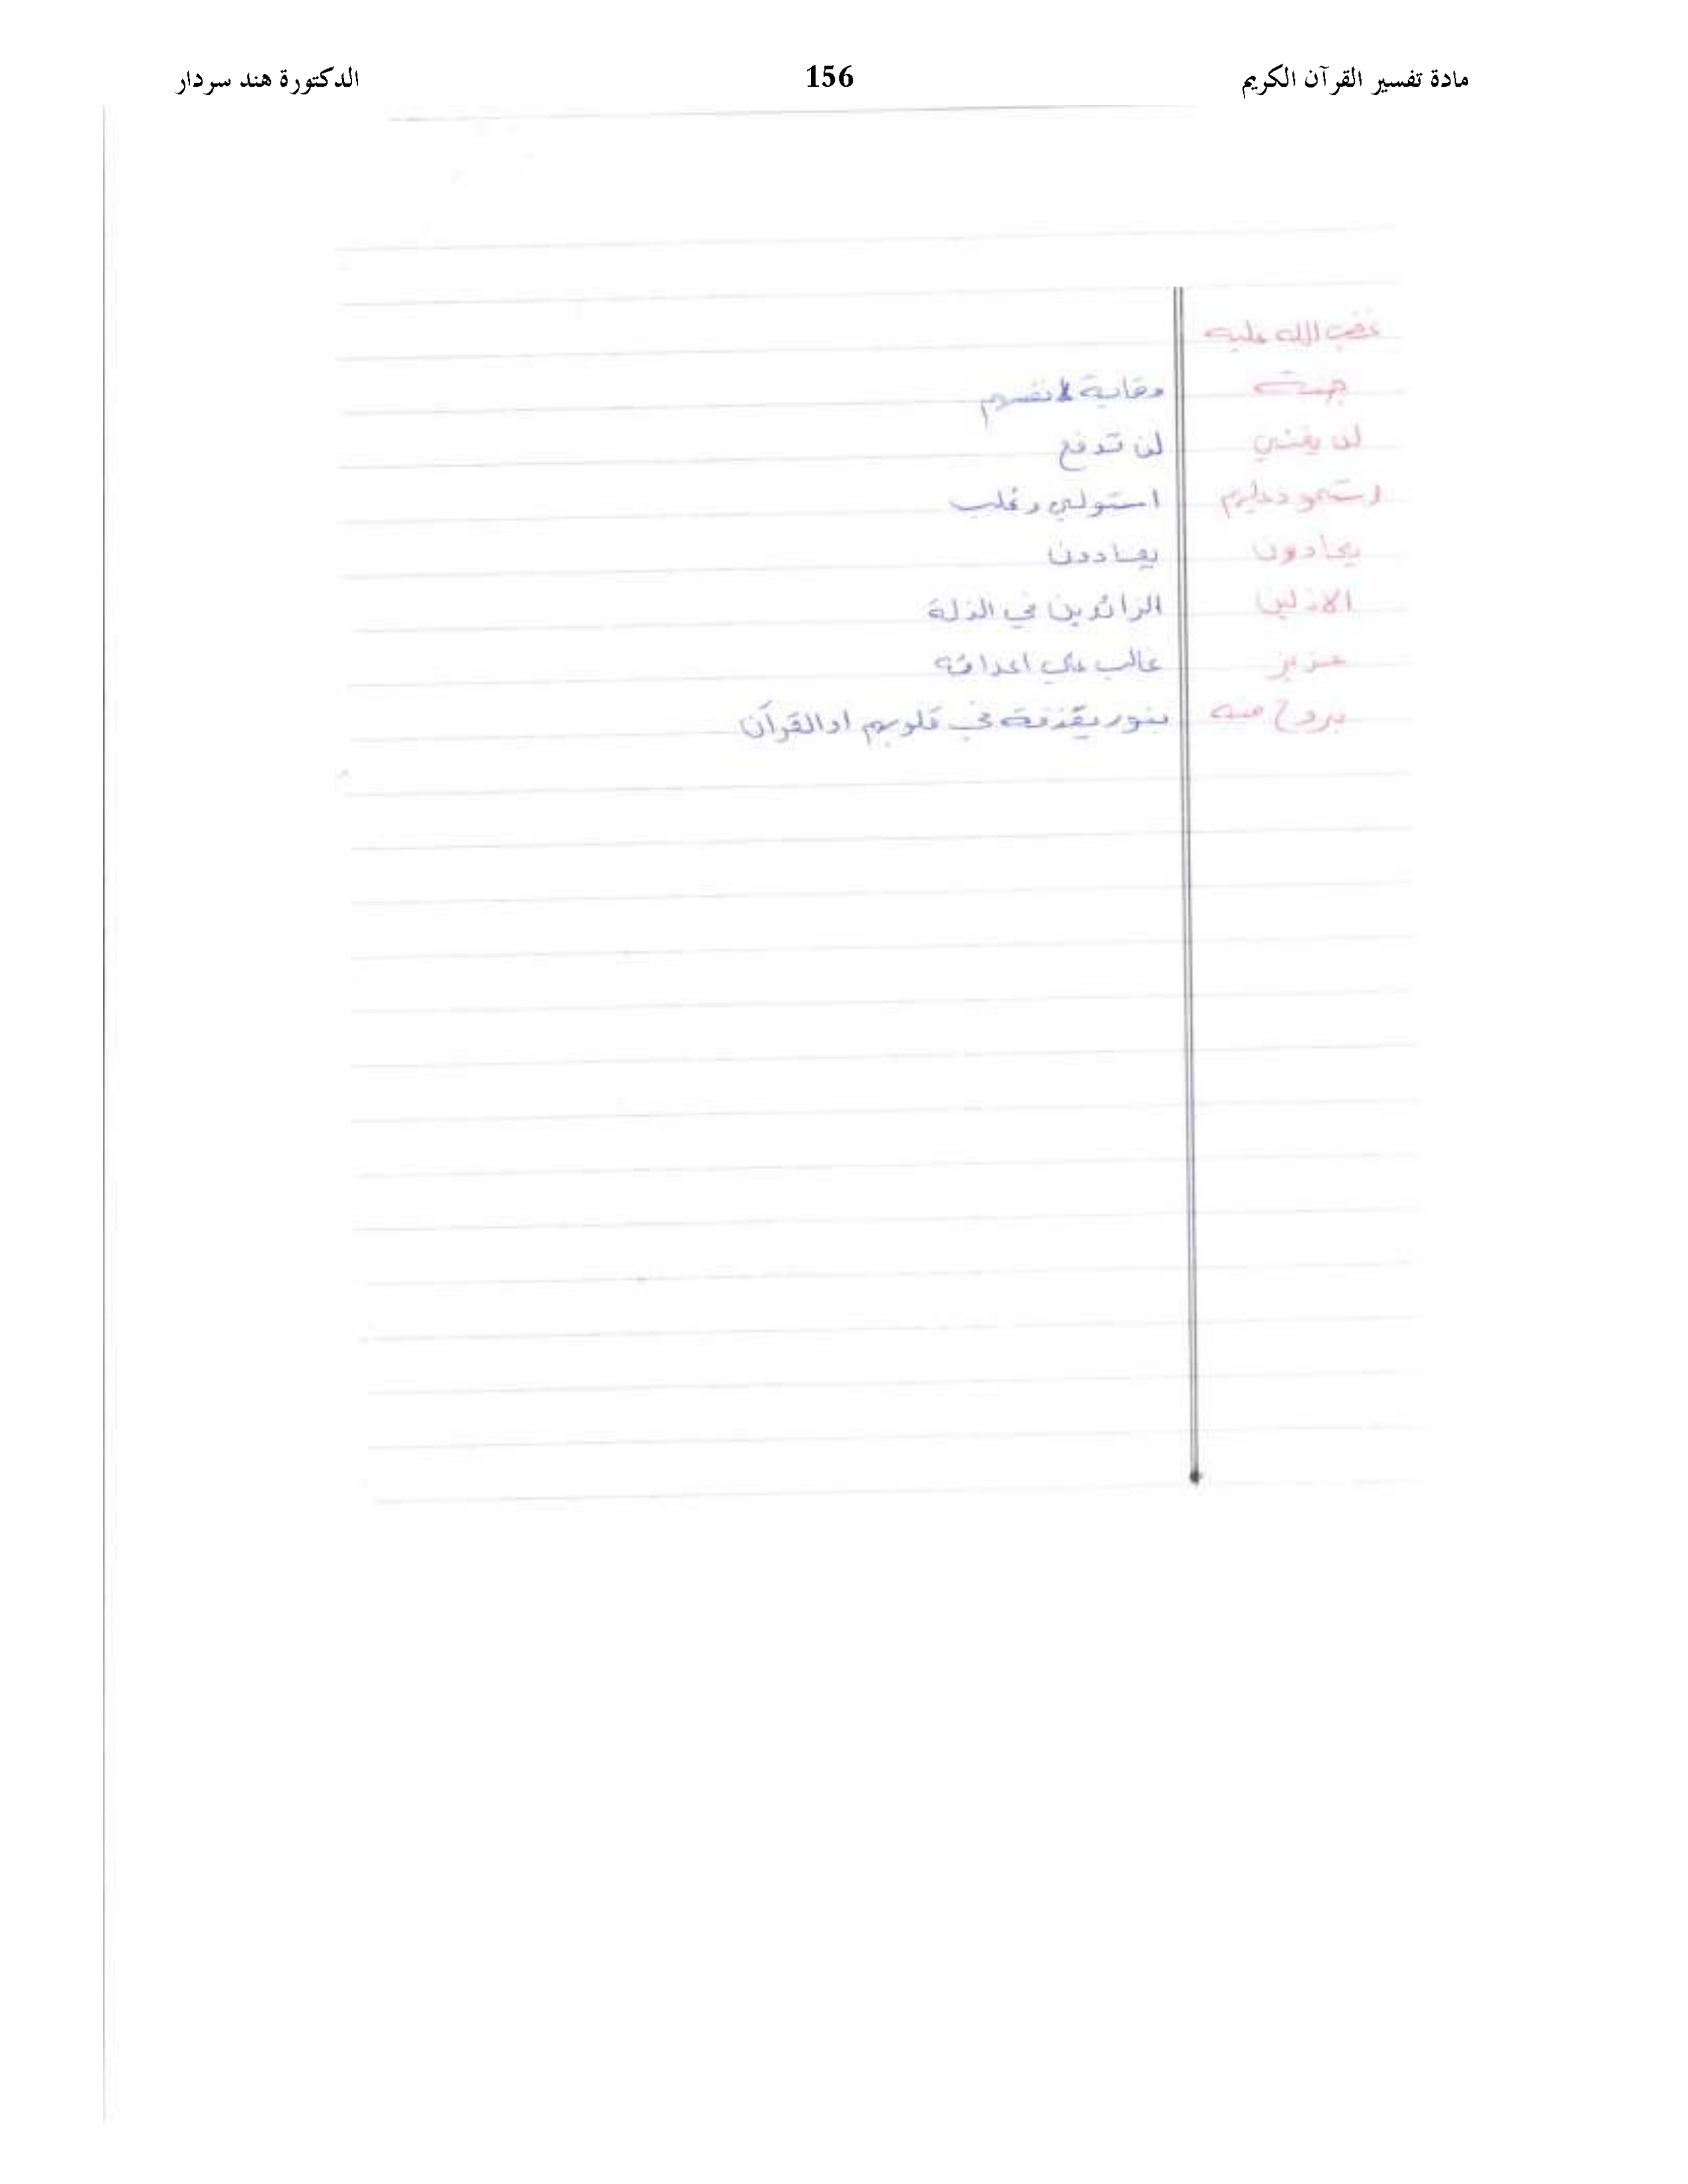 مادة تفسير القرآن الكريم 156 الدكتورة هند سردار
غضب الله عليه
جنة وقاية لانفسهم
لن يغني لن تدفع
استحوذ عليهم استولى وغلب
يحادون يعادون
الاذلين الزائدين في الذلة
عزيز غالب على اعدائه
بروح منه بنور يقذفة في قلوبهم او القرآن